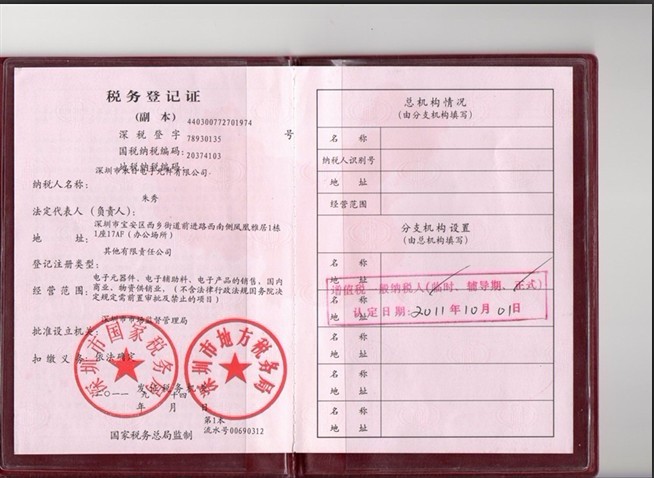 税务登记证
(副 本) 440300772701974
深 税 登 字 号
国税纳税编码: 78930135
地税纳税编码: 20374103
纳税人名称:
朱秀
法定代表人 (负责人):
地 址: 深圳市宝安区西乡街道前进路西南侧凤凰雅居1栋
1座17AF (办公场所)
其他有限责任公司
登记注册类型:
经营范围: 电子元器件、电子辅助料、电子产品的销售, 国内
商业, 物资供销业, (不含法律行政法规国务院决
定规定需前置审批及禁止的项目)
深圳市市场监督管理局
批准设立机关
扣缴义务: 依法确定
深圳市国家税务局
深圳市地方税务局
发证税务机关
二〇一一 九 十四
年 月 日
第1本
流水号00690312
国家税务总局监制
总机构情况
(由分支机构填写)
名 称
纳税人识别号
地 址
经营范围
分支机构设置
(由总机构填写)
名 称
地 址
增值税一般纳税人(临时、辅导期、正式)
认定日期: 2011年10月01日
名 称
地 址
名 称
地 址
名 称
地 址
名 称
地 址